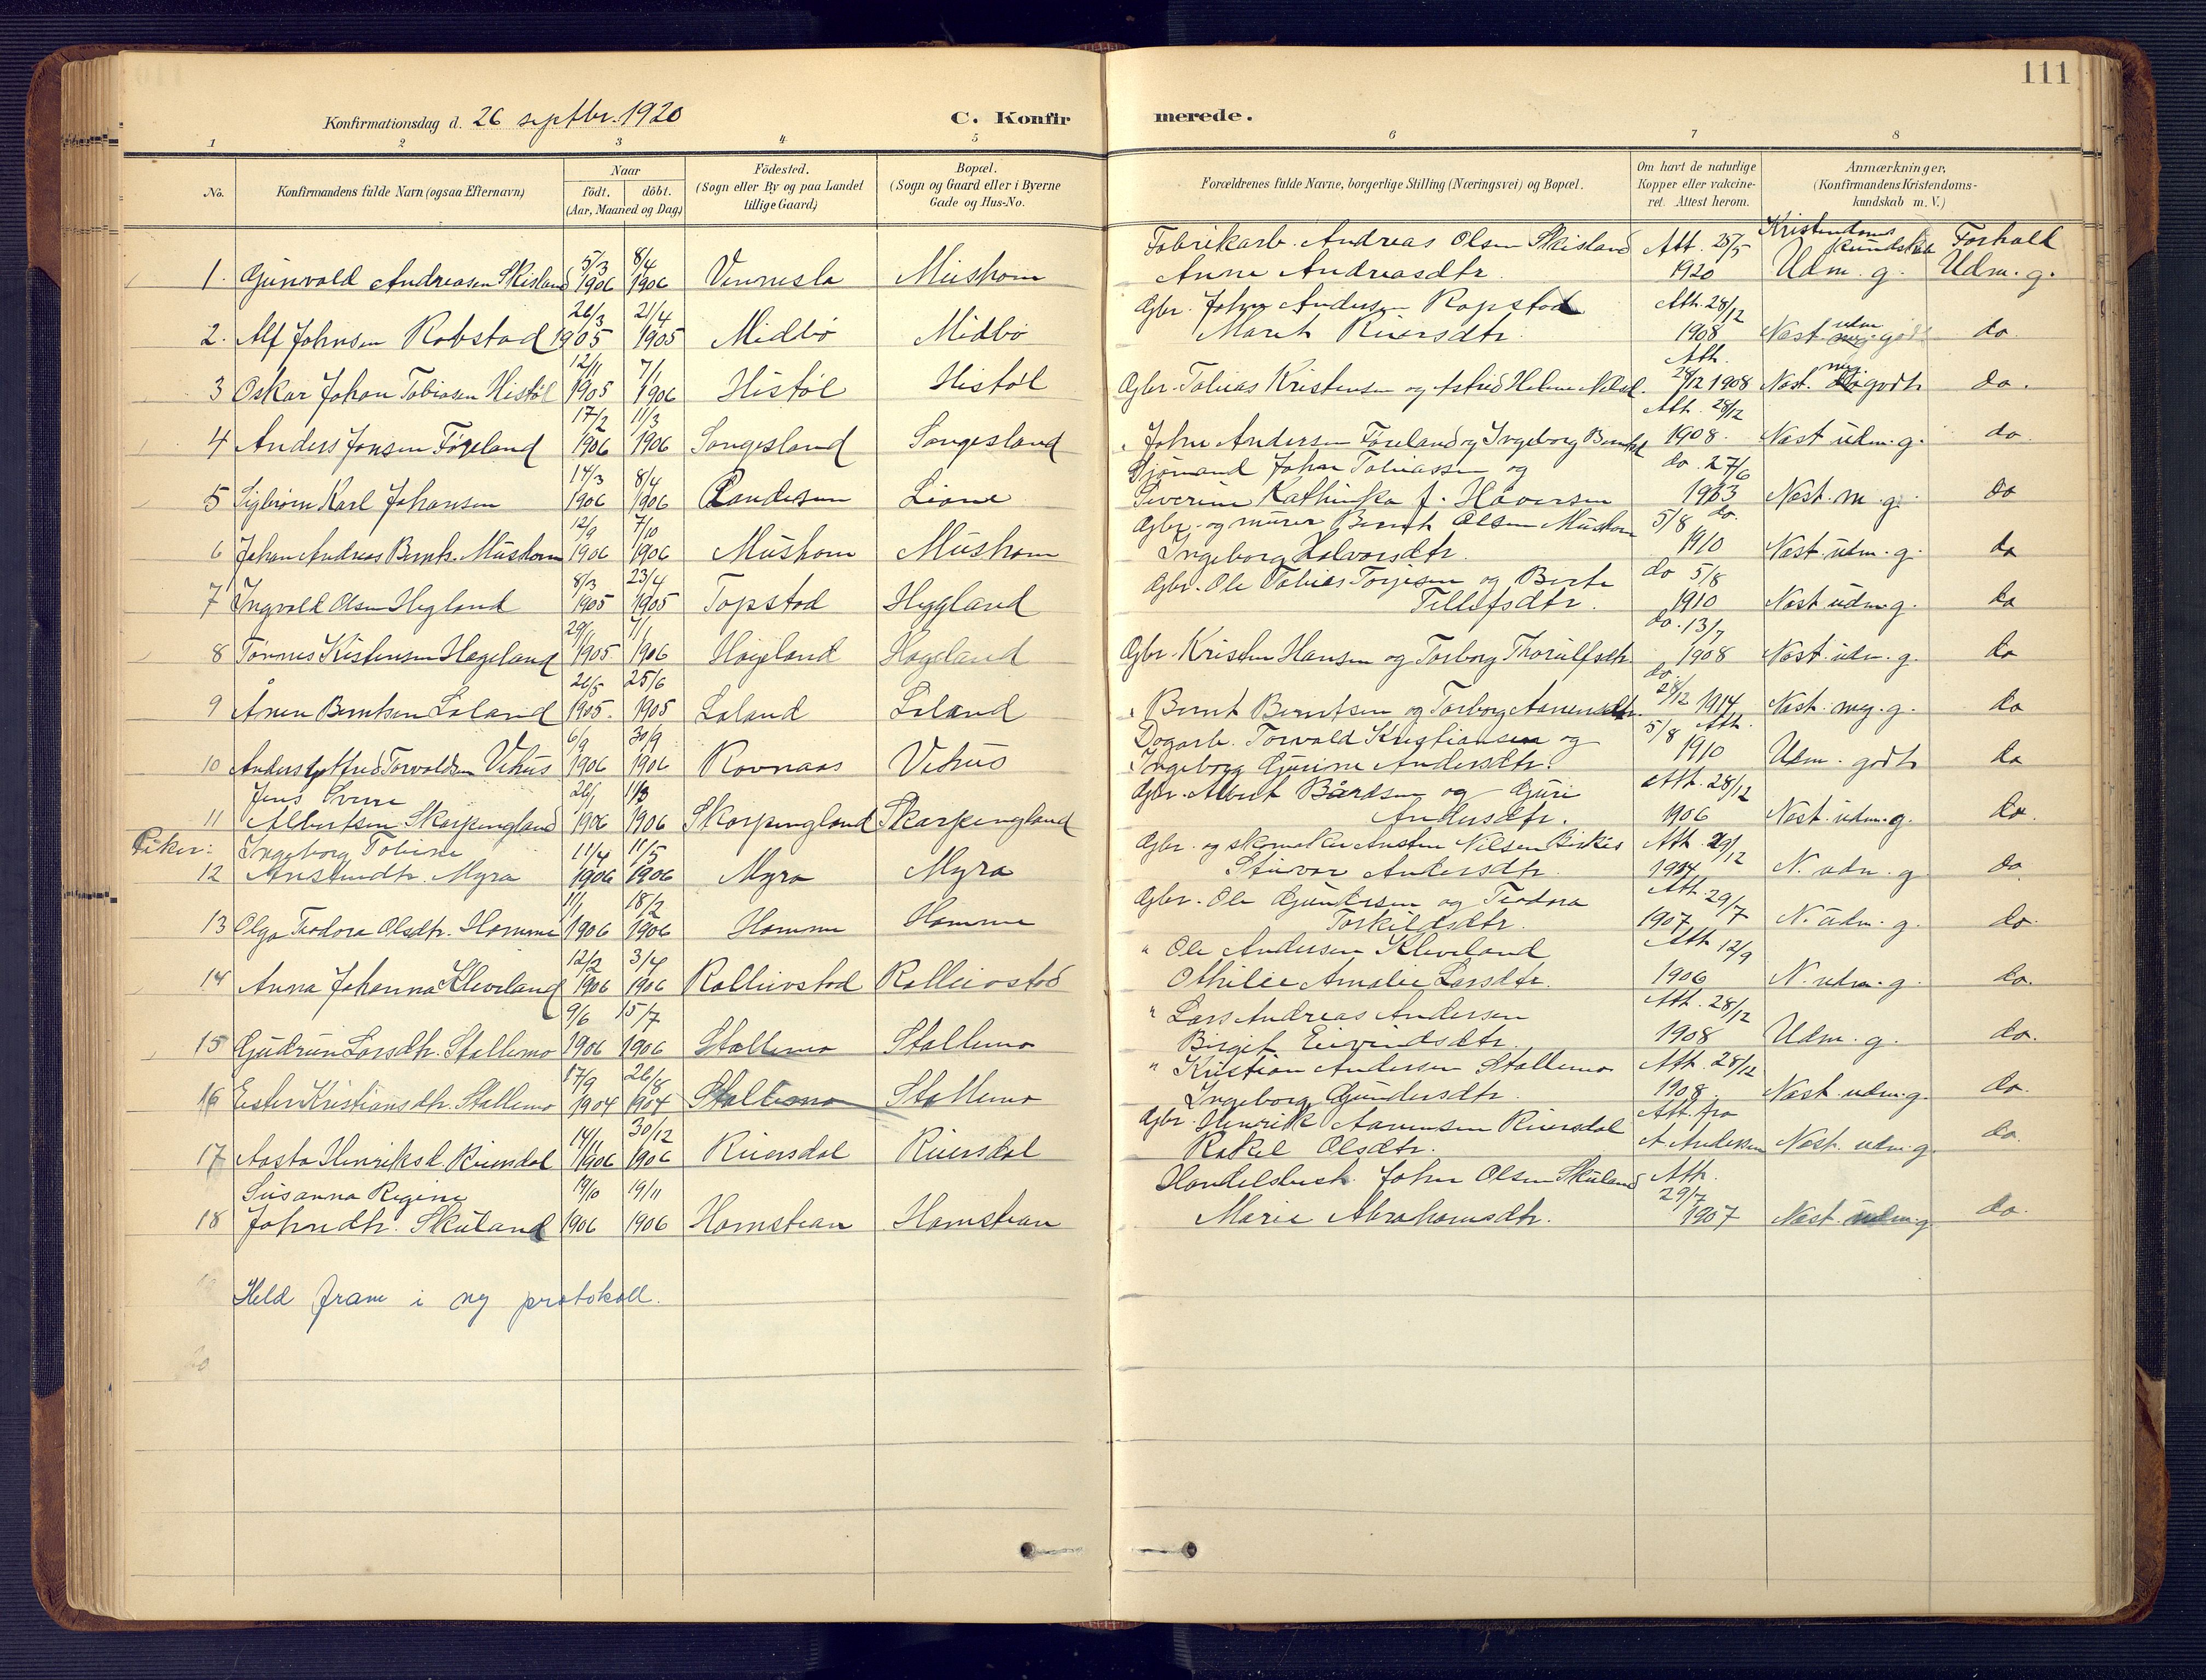 111
Konfirmationsdag d. 26 septbr. 1920
C. Konfirmerede.
1 2 3 4 5 6 7 8
No.
Konfirmandens fulde Navn (ogsaa Efternavn)
Naar
födt. döbt.
(Aar, Maaned og Dag)
Födested.
(Sogn eller By og paa Landet
tillige Gaard)
Bopæl.
(Sogn og Gaard eller i Byerne
Gade og Hus-No.
Forældrenes fulde Navne, borgerlige Stilling (Næringsvei) og Bopæl.
Om havt de naturlige
Kopper eller vakcine-
ret. Attest herom.
Anmærkninger,
(Konfirmandens Kristendoms-
kundskab m. V.)
Kristendoms
kundskab Forhold
1. Gunvald Andreasen Skisland 5/3 1906 8/4 1906 Vennesla Mushom Fabrikarb. Andreas Olsen Skisland Att. 25/5
Anne Andreasdtr. 1920 Udm. g. Udm. g.
2. Alf Johnsen Robstad 26/3 1905 21/4 1905 Midbö Midbö Gbr. John Andersen Ropstad Att. 28/12
Marit Riversdtr. 1908 Næst udm. godt do
3 Oskar Johan Tobiasen Histöl 12/11 1905 7/1 1906 Histöl Histöl Gbr. Tobias Kristensen og Astrid Helene Att.
28/12 1908 Næst. meg. godt do.
4 Anders Jonsen Föreland 17/2 1906 11/3 1906 Songesland Songesland " John Andersen Föreland og Ingeborg Att. 28/12
1908. Næst udm. g. do.
5 Sigbiörn Karl Johansen 14/3 1906 8/4 1906 Randesun Lione Sjömand Johan Tobiassen og do. 27/6
Severine Kathinka f. Haaversen 1913 Næst. m. g. do
6 Johan Andreas Bernts. Mushom 12/9 1906 7/10 1906 Mushom Mushom Gbr. og murer Bernt Olsen Mushom 5/8 do.
Ingeborg Halvorsdtr. 1910 Næst udm. g. do
7 Ingvald Olsen Hegland 8/3 1905 23/4 1905 Topstad Heggland Gbr. Ole Tobias Torjesen og Berte do 5/8
Tellefsdtr. 1910 Næst udm. g. do
8 Tönnes Kristensen Hageland 29/11 1905 1/1 1906 Hageland Hageland Gbr. Kristen Hansen og Torborg Thorulfsdtr. do. 13/7
1908 Næst. udm. g. do
9 Ånen Berntsen Loland 26/5 1905. 25/6 1905 Loland Loland " Bernt Berntsen og Torborg Aanensdtr. do.
28/12 1914 Næst. meg. g. do
10 Anders Alfred Torvaldsen Vehus 6/9 1906 30/9 1906 Rovnaas Vehus Dagarb. Torvald Kristiansen og 5/8 Att.
Ingeborg Gurine Andersdtr. 1910 Udm. godt do
Jens Sverre
11 Albertsen Skarpengland 26/1 1906 11/3 1906 Skarpengland Skarpengland Gbr. Albert Bårdsen og Guri Att. 28/12
Andersdtr. 1906 Næst. udm. g. do.
Piker:
Ingeborg Tobine
12 Anstendtr. Myra 11/4 1906 11/5 1906 Myra Myra Gbr. og skomaker Ansten Nilsen Birkis Att. 29/12
Andersdtr. N. udm. g do.
13 Olga Teodora Olsdtr. Homme 11/1 1906 18/2 1906 Homme Homme Gbr. Ole Gundersen og Teodora Att. 29/7
Torkildsdtr. 1907 N. udm. g. do.
14 Anna Johanna Kleveland 12/2 1906 3/4 1906 Rolleivstad Rolleivstad " Ole Andersen Kleveland Att 12/9
Othilie Amalie Larsdtr. 1906 N. udm. g. do.
15 Gudrun Larsdtr. Stallemo 9/6 1906 15/7 1906 Stallemo Stallemo " Lars Andreas Andersen Att. 28/12
Birgit Eivindsdtr. 1908 Udm. g. do.
16 Ester Kristiansdtr. Stallemo 17/9 1904 26/8 1904 Stallemo Stallemo " Kristian Andersen Stallemo Att. 28/12
Ingeborg Gundersdtr. 1908. Næst udm. g. do.
17 Aasta Henriksd. Riersdal 14/11 1906 30/12 1906 Riversdal Riversdal Gbr. Henrik Aanensen Riversdal Att. fra
Rakel Olsdtr. A Andersen Næst. udm. g. do.
Susanna Regine
18 Johndtr. Skuland 19/10 1906 19/11 1906 Homstean Homstean Handelsbest. John Olsen Skuland Att.
Marie Abrahamsdtr. 29/7 1907 Næst. udm. g do.
Held fram i ny protokoll.